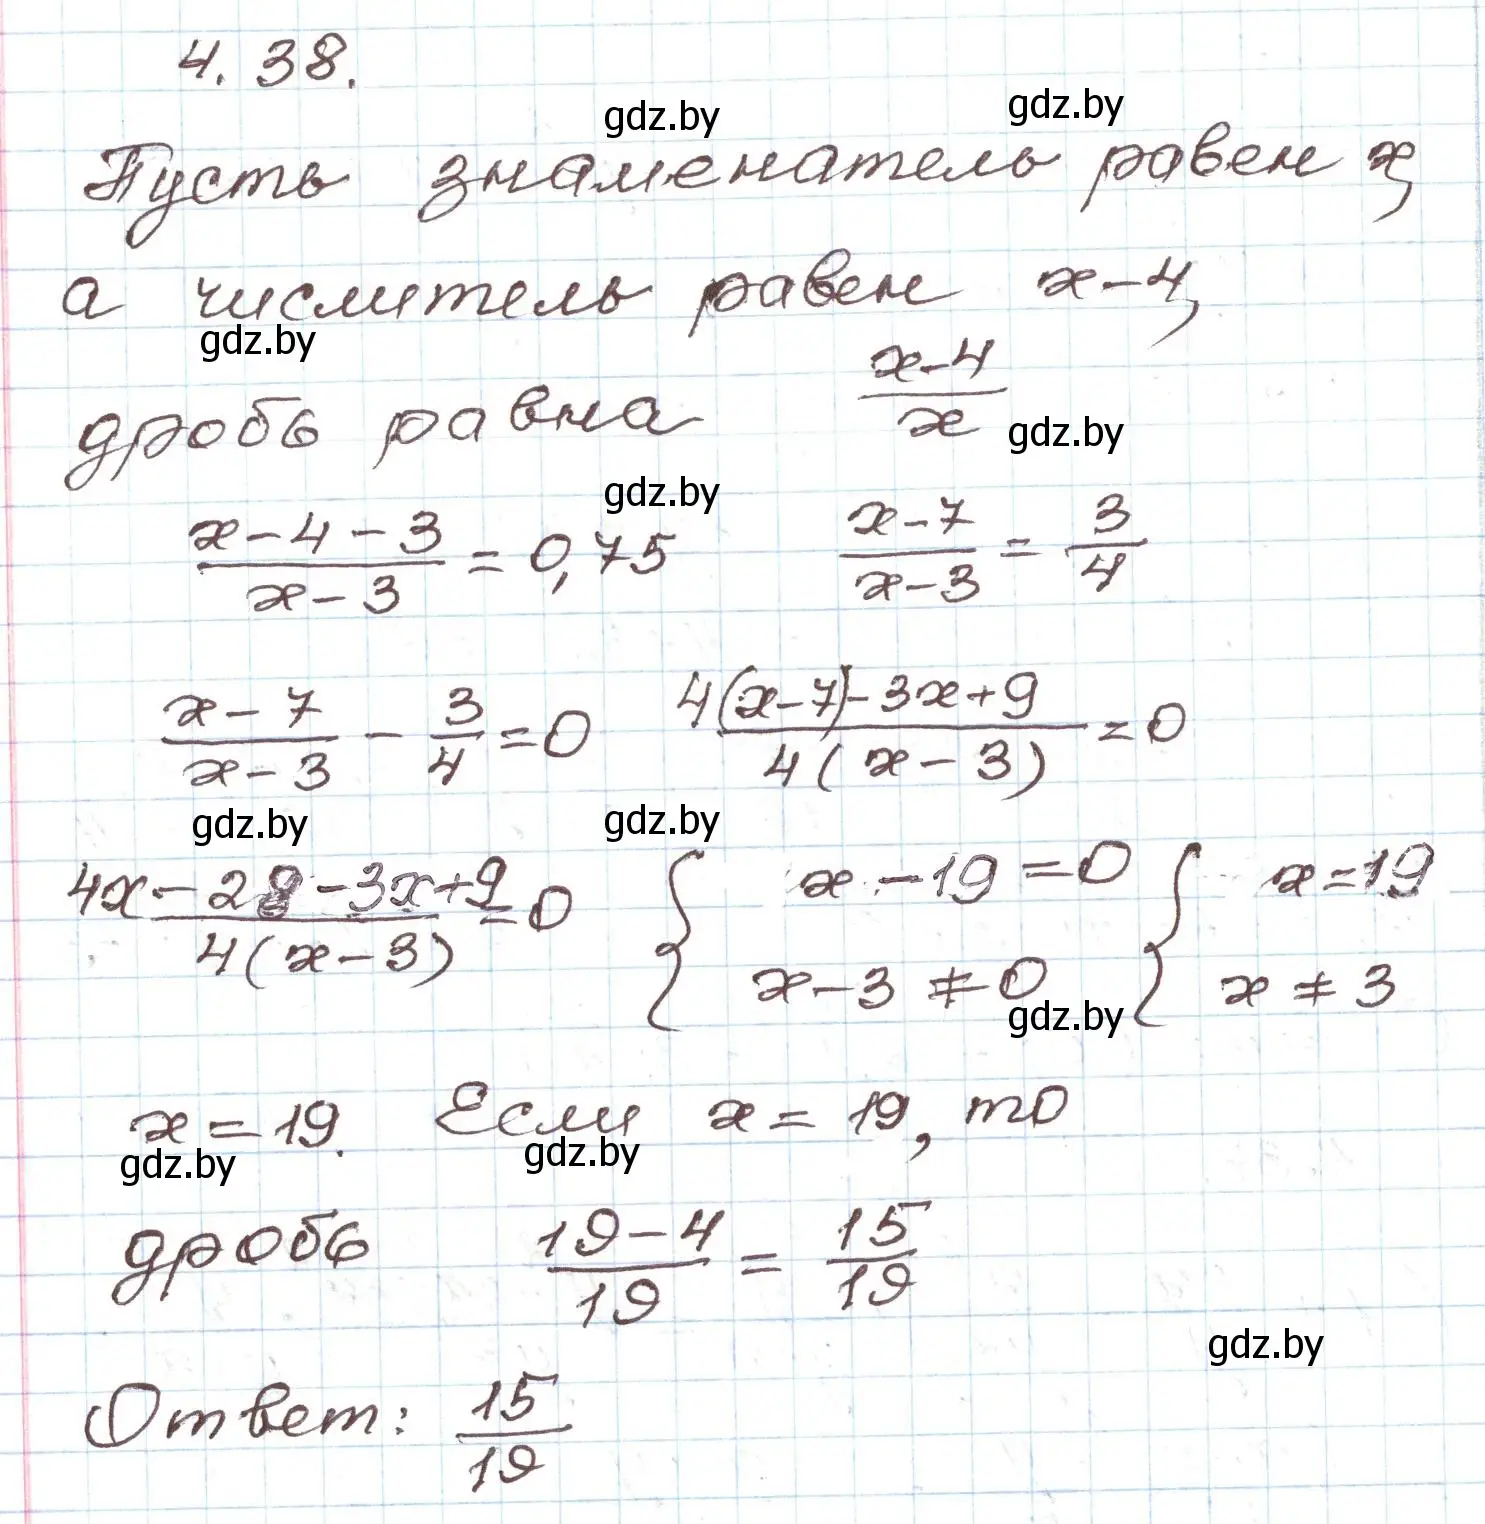 4.38.
gdz.by gdz.by
Пусть знаменатель равен x,
а числитель равен x-4,
gdz.by
дробь равна (x-4)/x
gdz.by
gdz.by
(x-4-3)/(x-3) = 0,75 (x-7)/(x-3) = 3/4
(x-7)/(x-3) - 3/4 = 0 (4(x-7)-3x+9)/(4(x-3)) = 0
gdz.by gdz.by
(4x-28-3x+9)/(4(x-3)) = 0 { x-19=0 { x=19
x-3≠0 x≠3
gdz.by
x=19. Если x=19, то
gdz.by gdz.by
дробь (19-4)/19 = 15/19
gdz.by
Ответ: 15/19